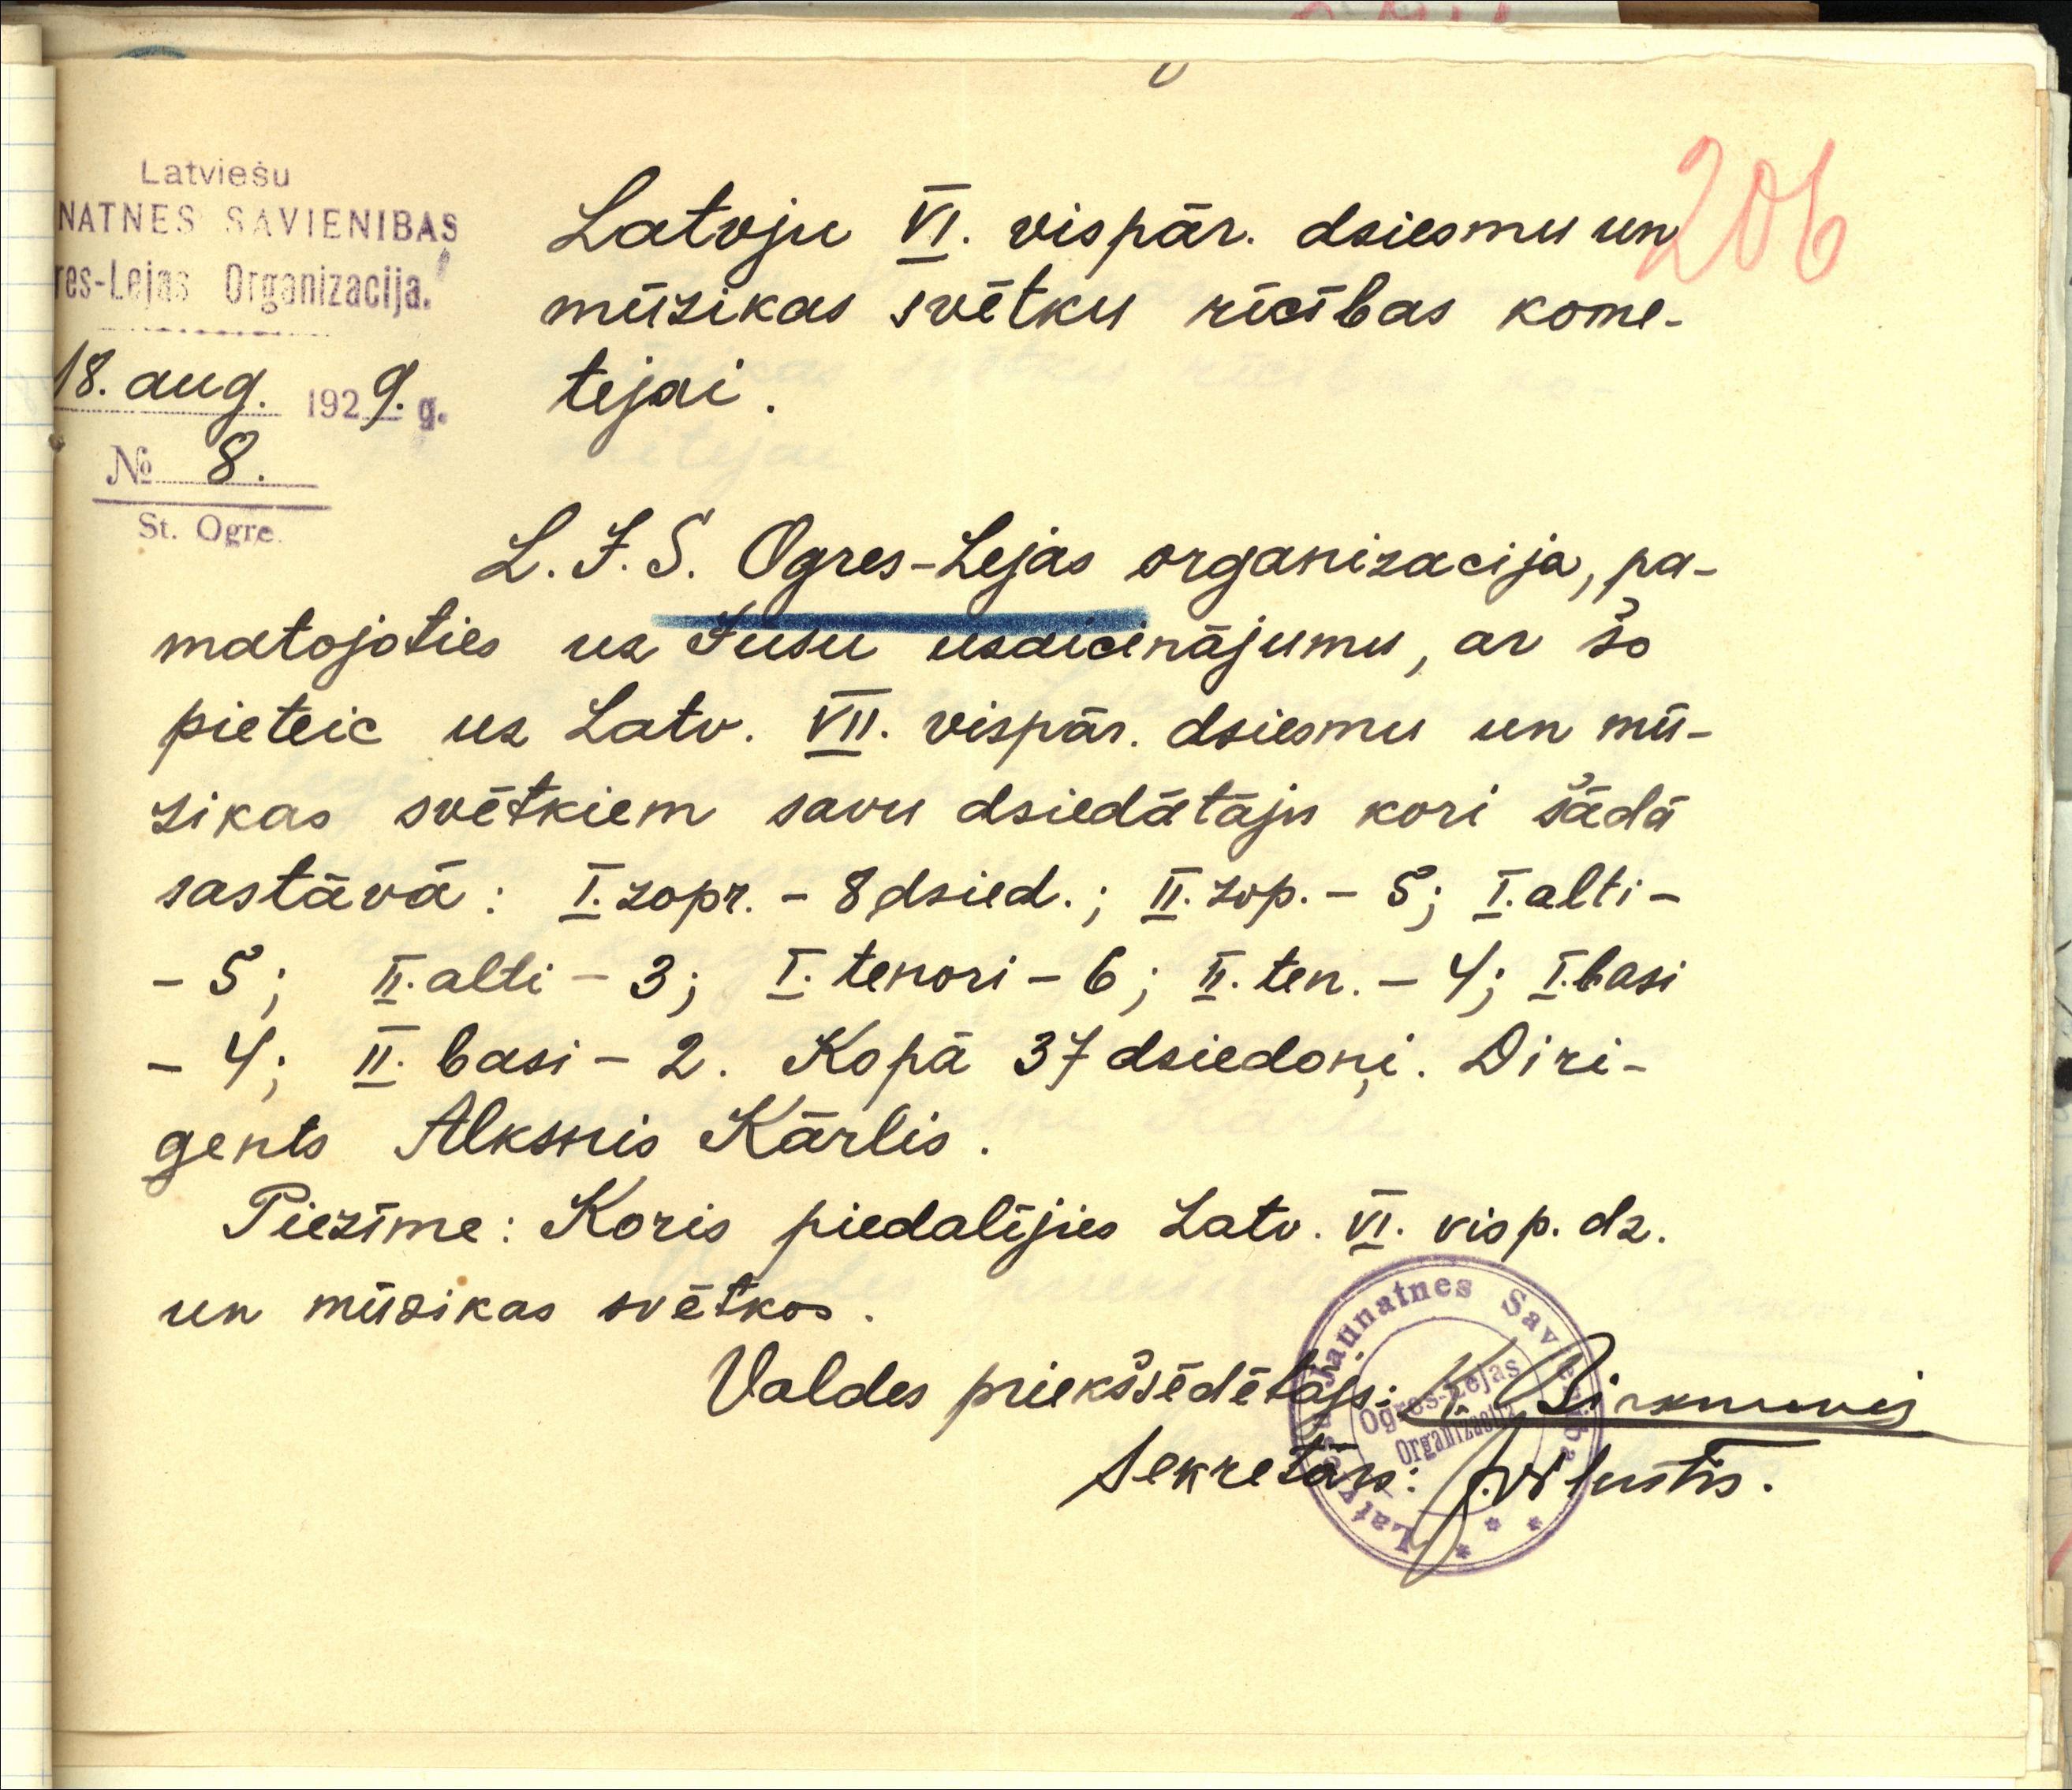 206
Latviešu
NATNES SAVIENIBAS
res-Lejas Organizacija.
18. aug. 1929. g.
№ 8.
St. Ogre.
Latvju VI. vispār. dziesmu un
mūzikas svētku rīcības kome-
tejai.
L. J. S. Ogres-Lejas organizacija, pa-
matojoties uz Jūsu uzaicinājumu, ar šo
pieteic uz Latv. VII. vispār. dziesmu un mū-
zikas svētkiem savu dziedātāju kori šādā
sastāvā: I. zopr. - 8 dzied.; II. zop. - 5; I. alti -
- 5; II. alti - 3; I. tenori - 6; II. ten. - 4; I. basi
- 4; II. basi - 2. Kopā 37 dziedoņi. Diri-
gents Alksnis Kārlis.
Piezīme: Koris piedalījies Latv. VI. visp. dz.
un mūzikas svētkos.
Valdes priekšsēdētājs:
Sekretārs:
Latviešu Jaunatnes Savienība
Ogres-Lejas
Organizacija